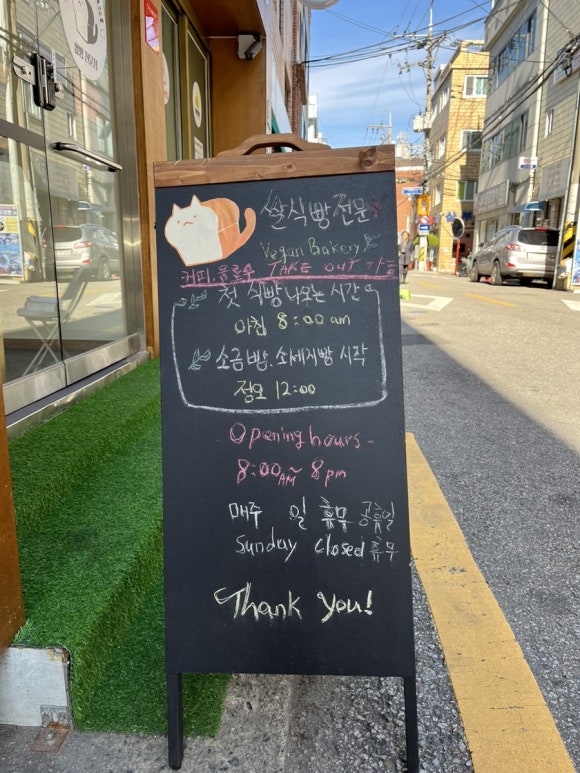 쌀식빵전문
Vegan Bakery
커피.음료수 TAKE OUT 가능
첫 식빵 나오는 시간
아침 8:00 am
소금빵.소세지빵 시작
정오 12:00
Opening hours-
8:00AM~8pm
매주 일 휴무 공휴일
Sunday closed 휴무
Thank you!